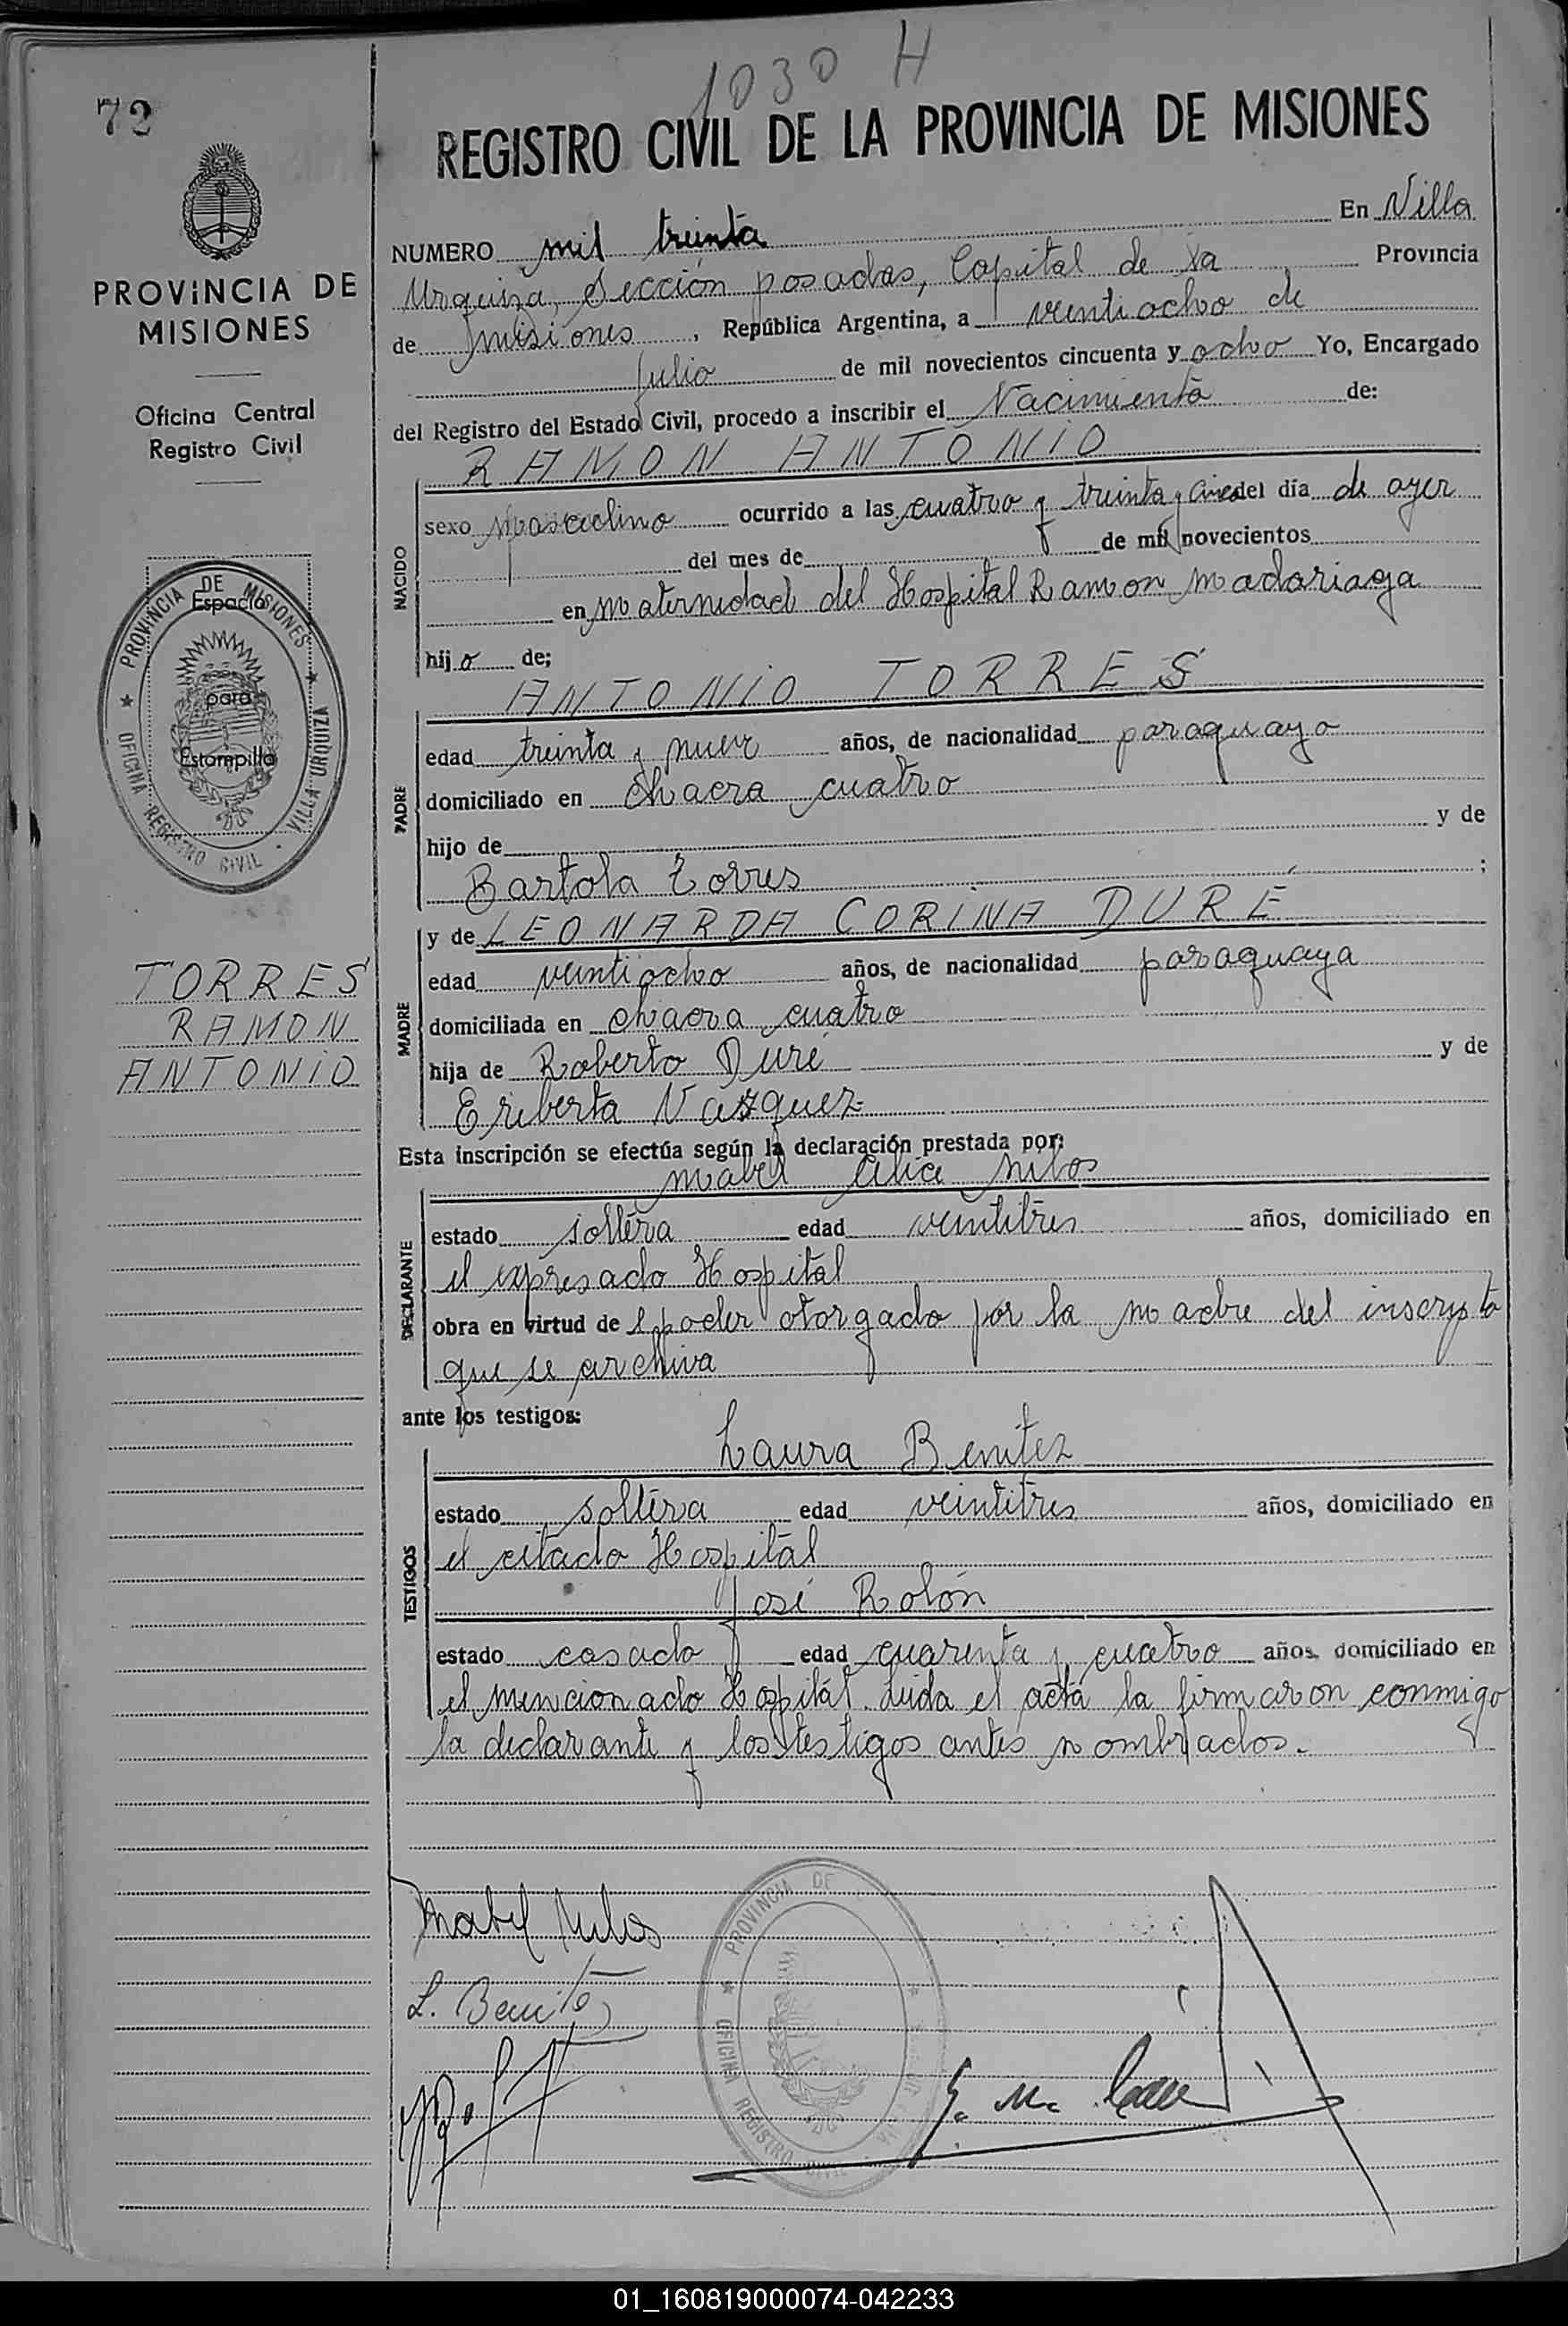 1030 H
72
REGISTRO CIVIL DE LA PROVINCIA DE MISIONES
PROVINCIA DE
MISIONES
Oficina Central
Registro Civil
PROVINCIA DE MISIONES
OFICINA REGISTRO CIVIL - VILLA URQUIZA
Espacio
para
Estampilla
TORRES
RAMON
ANTONIO
NUMERO mil treinta En Villa
Urquiza, Sección posadas, Capital de la Provincia
de Misiones, República Argentina, a veintiocho de
julio de mil novecientos cincuenta y ocho Yo, Encargado
del Registro del Estado Civil, procedo a inscribir el Nacimiento de:
RAMON ANTONIO
NACIDO
sexo Masculino ocurrido a las cuatro y treinta y cinco del día de ayer
del mes de de mil novecientos
en maternidad del Hospital Ramon Madariaga
hijo de;
ANTONIO TORRES
PADRE
edad treinta y nueve años, de nacionalidad paraguayo
domiciliado en Chacra cuatro
hijo de y de
Bartola Torres ;
y de LEONARDA CORINA DURÉ
MADRE
edad veintiocho años, de nacionalidad paraguaya
domiciliada en chacra cuatro
hija de Roberto Duré y de
Eriberta Vazquez
Esta inscripción se efectúa según la declaración prestada por:
Mabel Celia
DECLARANTE
estado soltera edad veintitres años, domiciliado en
el expresado Hospital
obra en virtud del poder otorgado por la madre del inscripto
que se archiva
ante los testigos:
Laura Benitez
TESTIGOS
estado soltera edad veintitres años, domiciliado en
el citado Hospital
José Rolón
estado casado edad cuarenta y cuatro años, domiciliado en
el mencionado Hospital. Leida el acta la firmaron conmigo
la declarante y los testigos antes nombrados.
Mabel
L. Benitez
PROVINCIA DE
OFICINA REGISTRO CIVIL
01_160819000074-042233